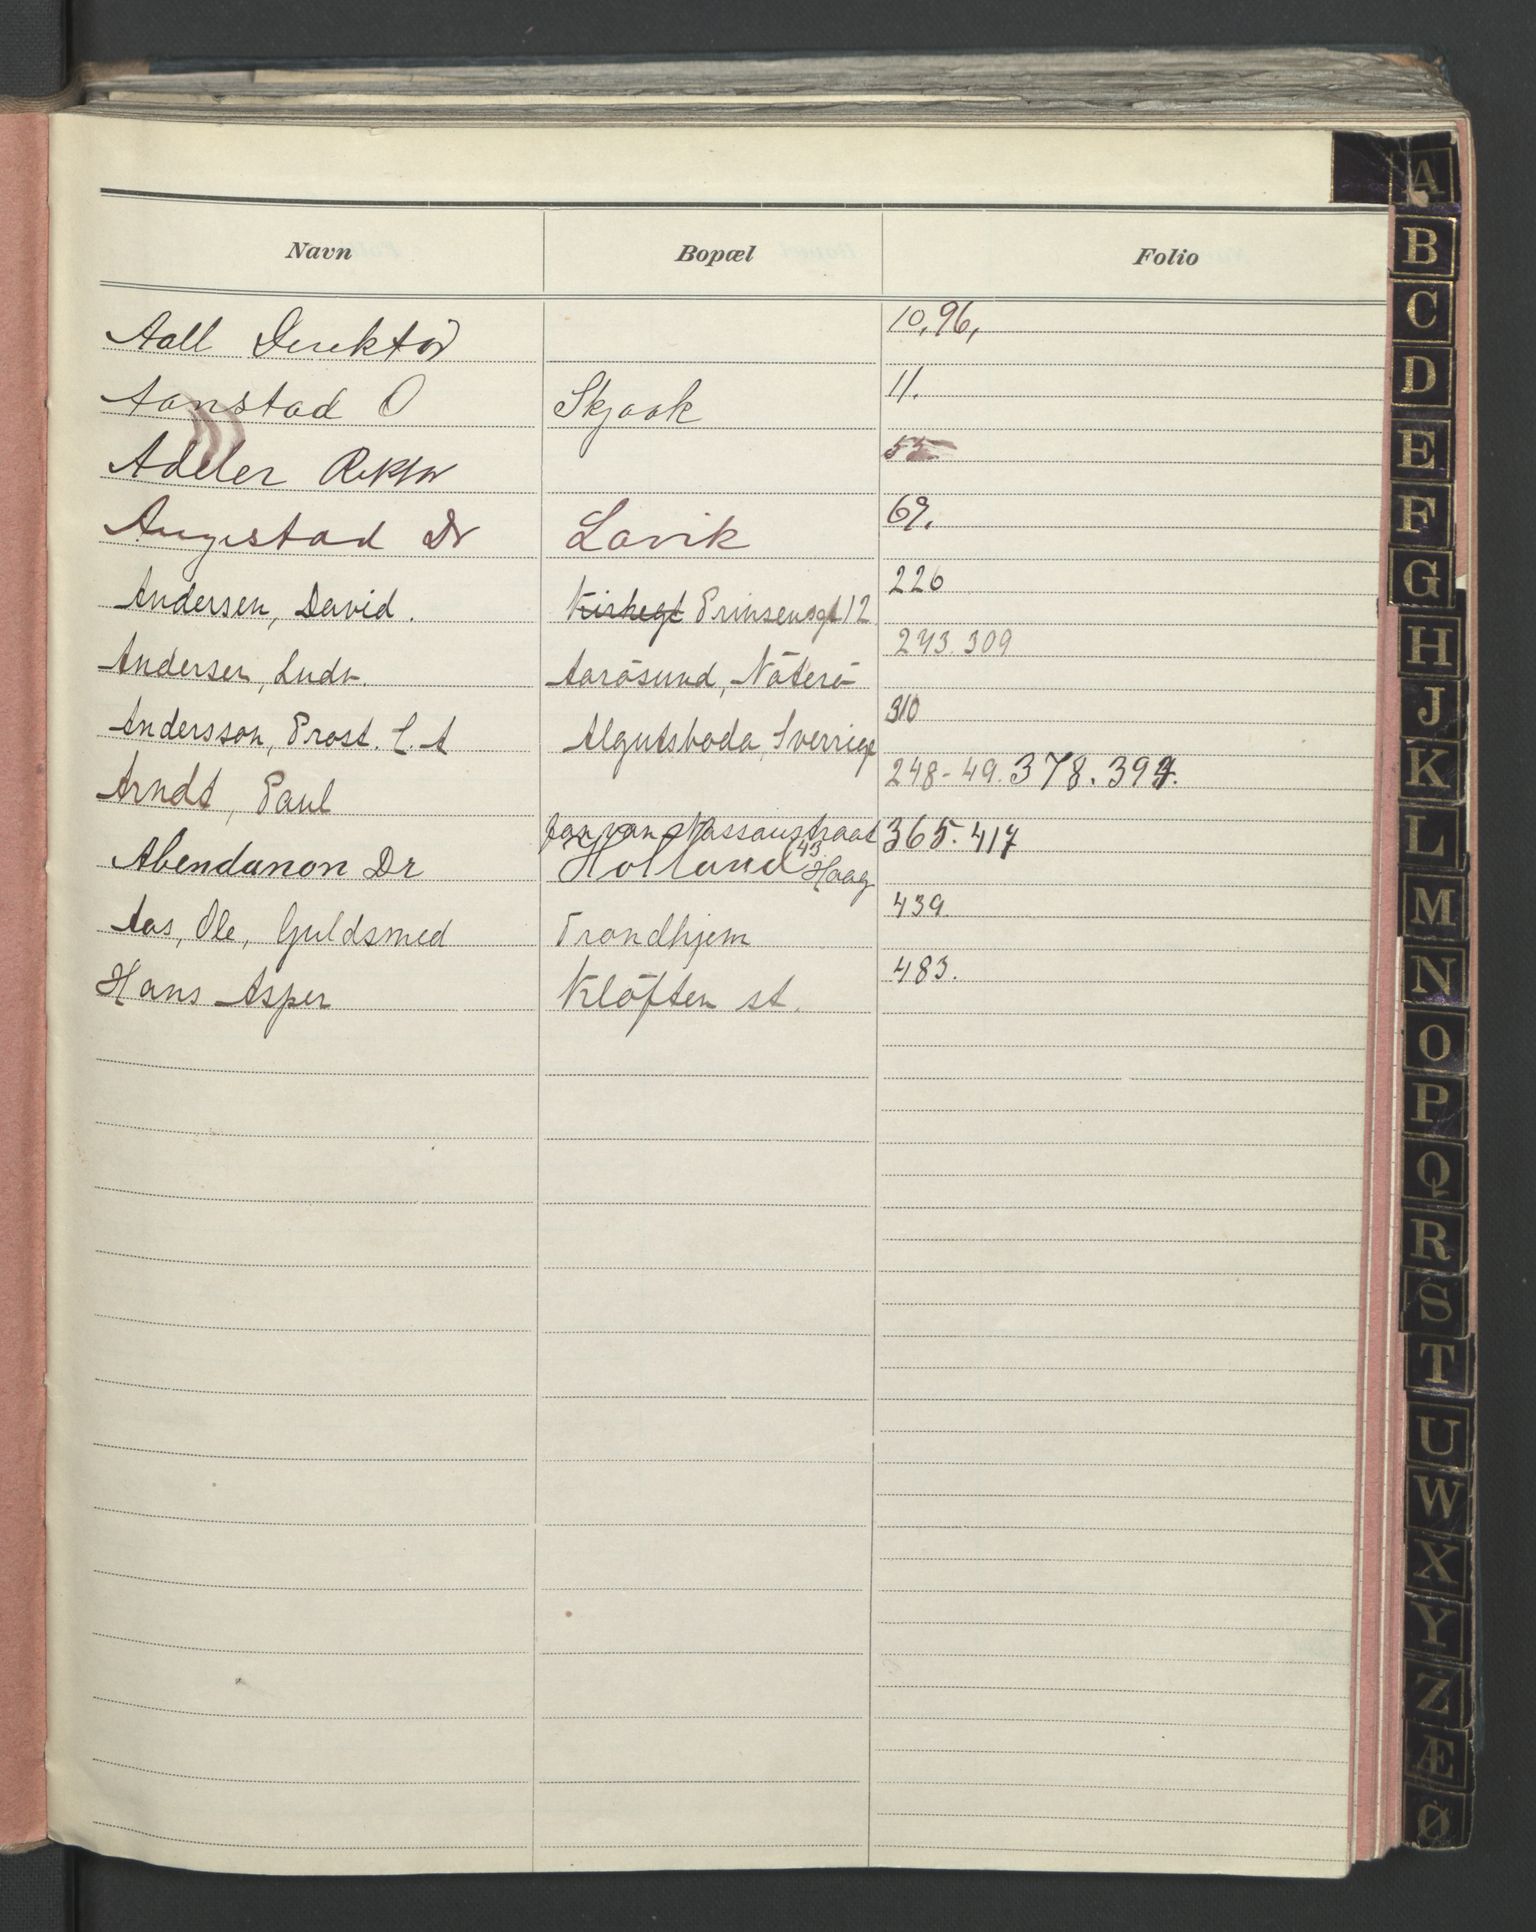 Navn Bopæl Folio
Aall Direktør 10, 96,
Aanstad O Skjaak 11.
Adeler Rektor 55
Augestad Dr Lavik 69.
Andersen, David. Kirkegt Prinsensgt 12 226
Andersen, Ludv. Aarøsund, Nøterø 243. 309
Andersson, Prost. C. A Algutsboda, Sverrige 310
Arndt, Paul 248-49. 378. 394.
Abendanon Dr Jan van Nassaustraat 43 365. 417
Holland Haag
Aas, Ole, Guldsmed Trondhjem 439.
Hans Asper Kløften st. 483.
A
B
C
D
E
F
G
H
J
K
L
M
N
O
P
Q
R
S
T
U
W
X
Y
Z
Æ
Ø